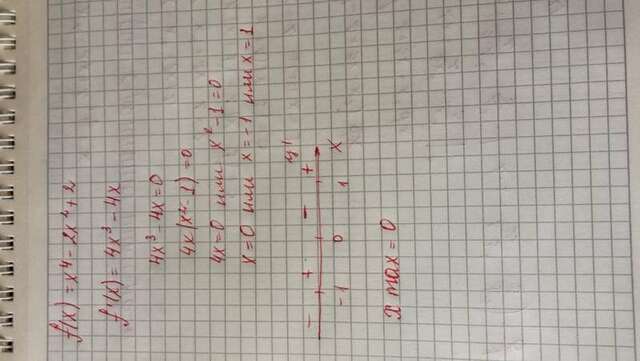 f(x) = x⁴ - 2x² + 2
f'(x) = 4x³ - 4x
4x³ - 4x = 0
4x(x² - 1) = 0
4x = 0 или x² - 1 = 0
x = 0 или x = -1 или x = 1
- + - + y'
-1 0 1 x
x max = 0